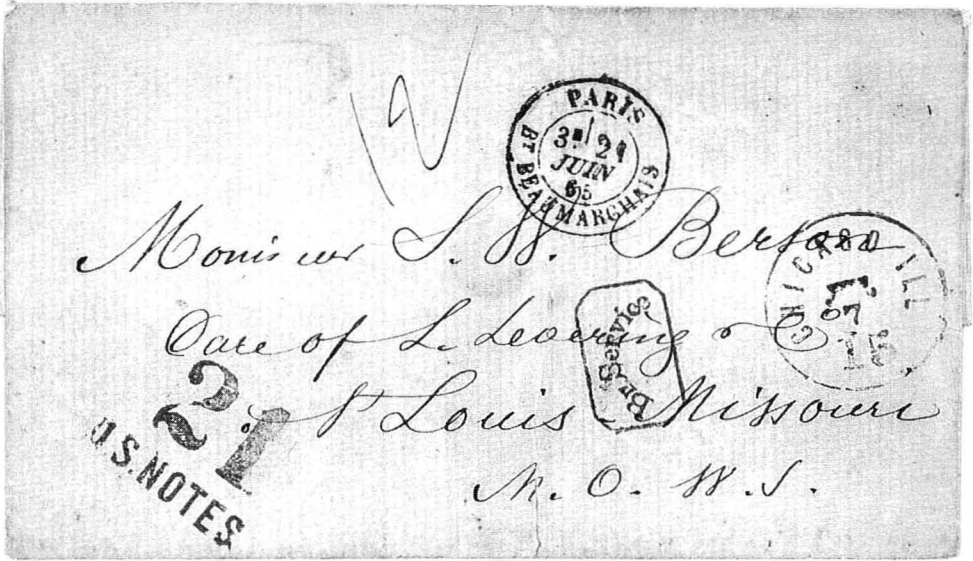 12
PARIS
3E/ 21
JUIN
65
BT BEAUMARCHAIS
Monsieur S. W.
CHICAGO ILL
Care of L. Levering & Co
Br. Service
St Louis Missouri
21
U.S. NOTES
N. O. W. S.